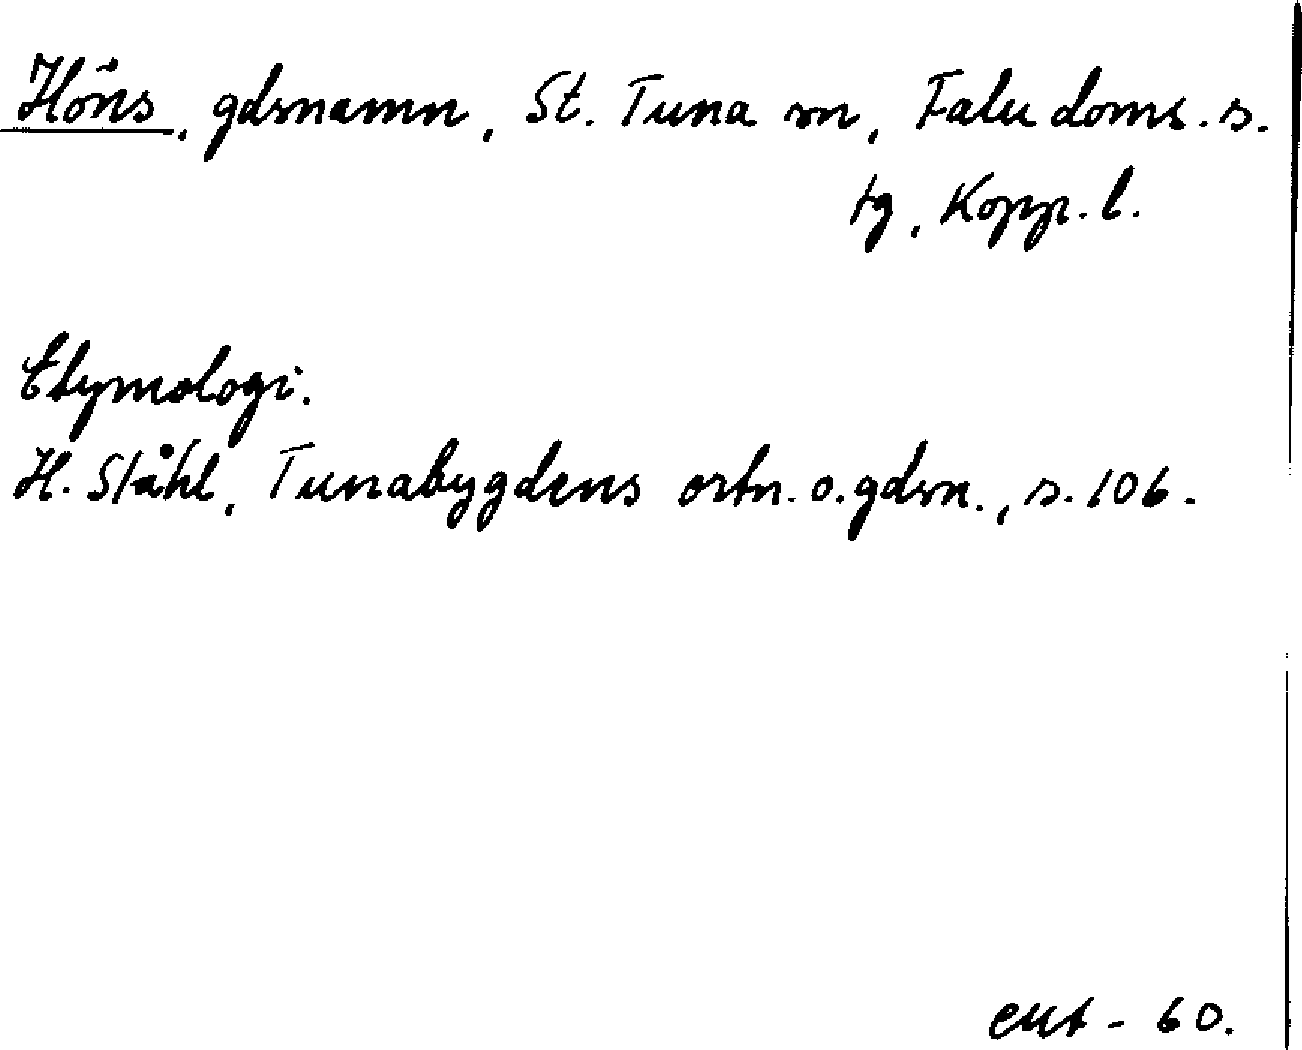 Höns, gdsnamn, St. Tuna sn, Falu doms. s.
tg, Kopp. l.
Etymologi.
H. Ståhl, Tunabygdens ortn. o. gdsn., s. 106.
EMt - 60.